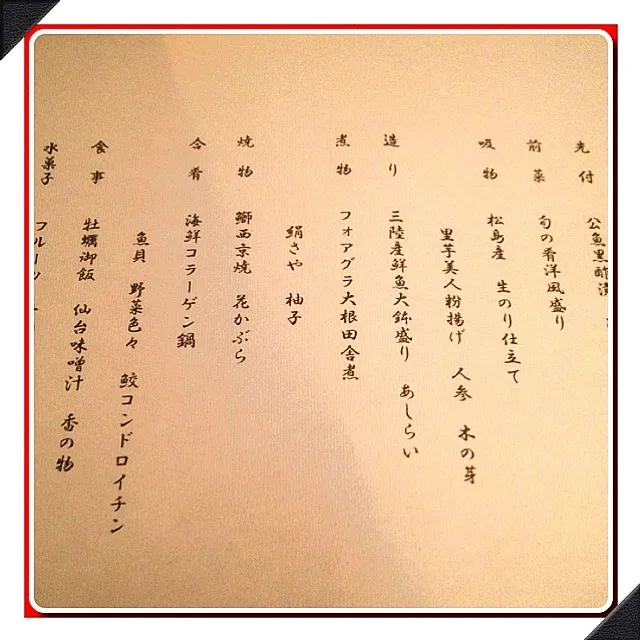 先付 公魚黒酢漬
前菜 旬の肴洋風盛り
吸物 松島産 生のり仕立て
里芋美人粉揚げ 人参 木の芽
造り 三陸産鮮魚大鉢盛り あしらい
煮物 フォアグラ大根田舎煮
絹さや 柚子
焼物 鰤西京焼 花かぶら
合肴 海鮮コラーゲン鍋
魚貝 野菜色々 鮫コンドロイチン
食事 牡蠣御飯 仙台味噌汁 香の物
水菓子 フルーツ